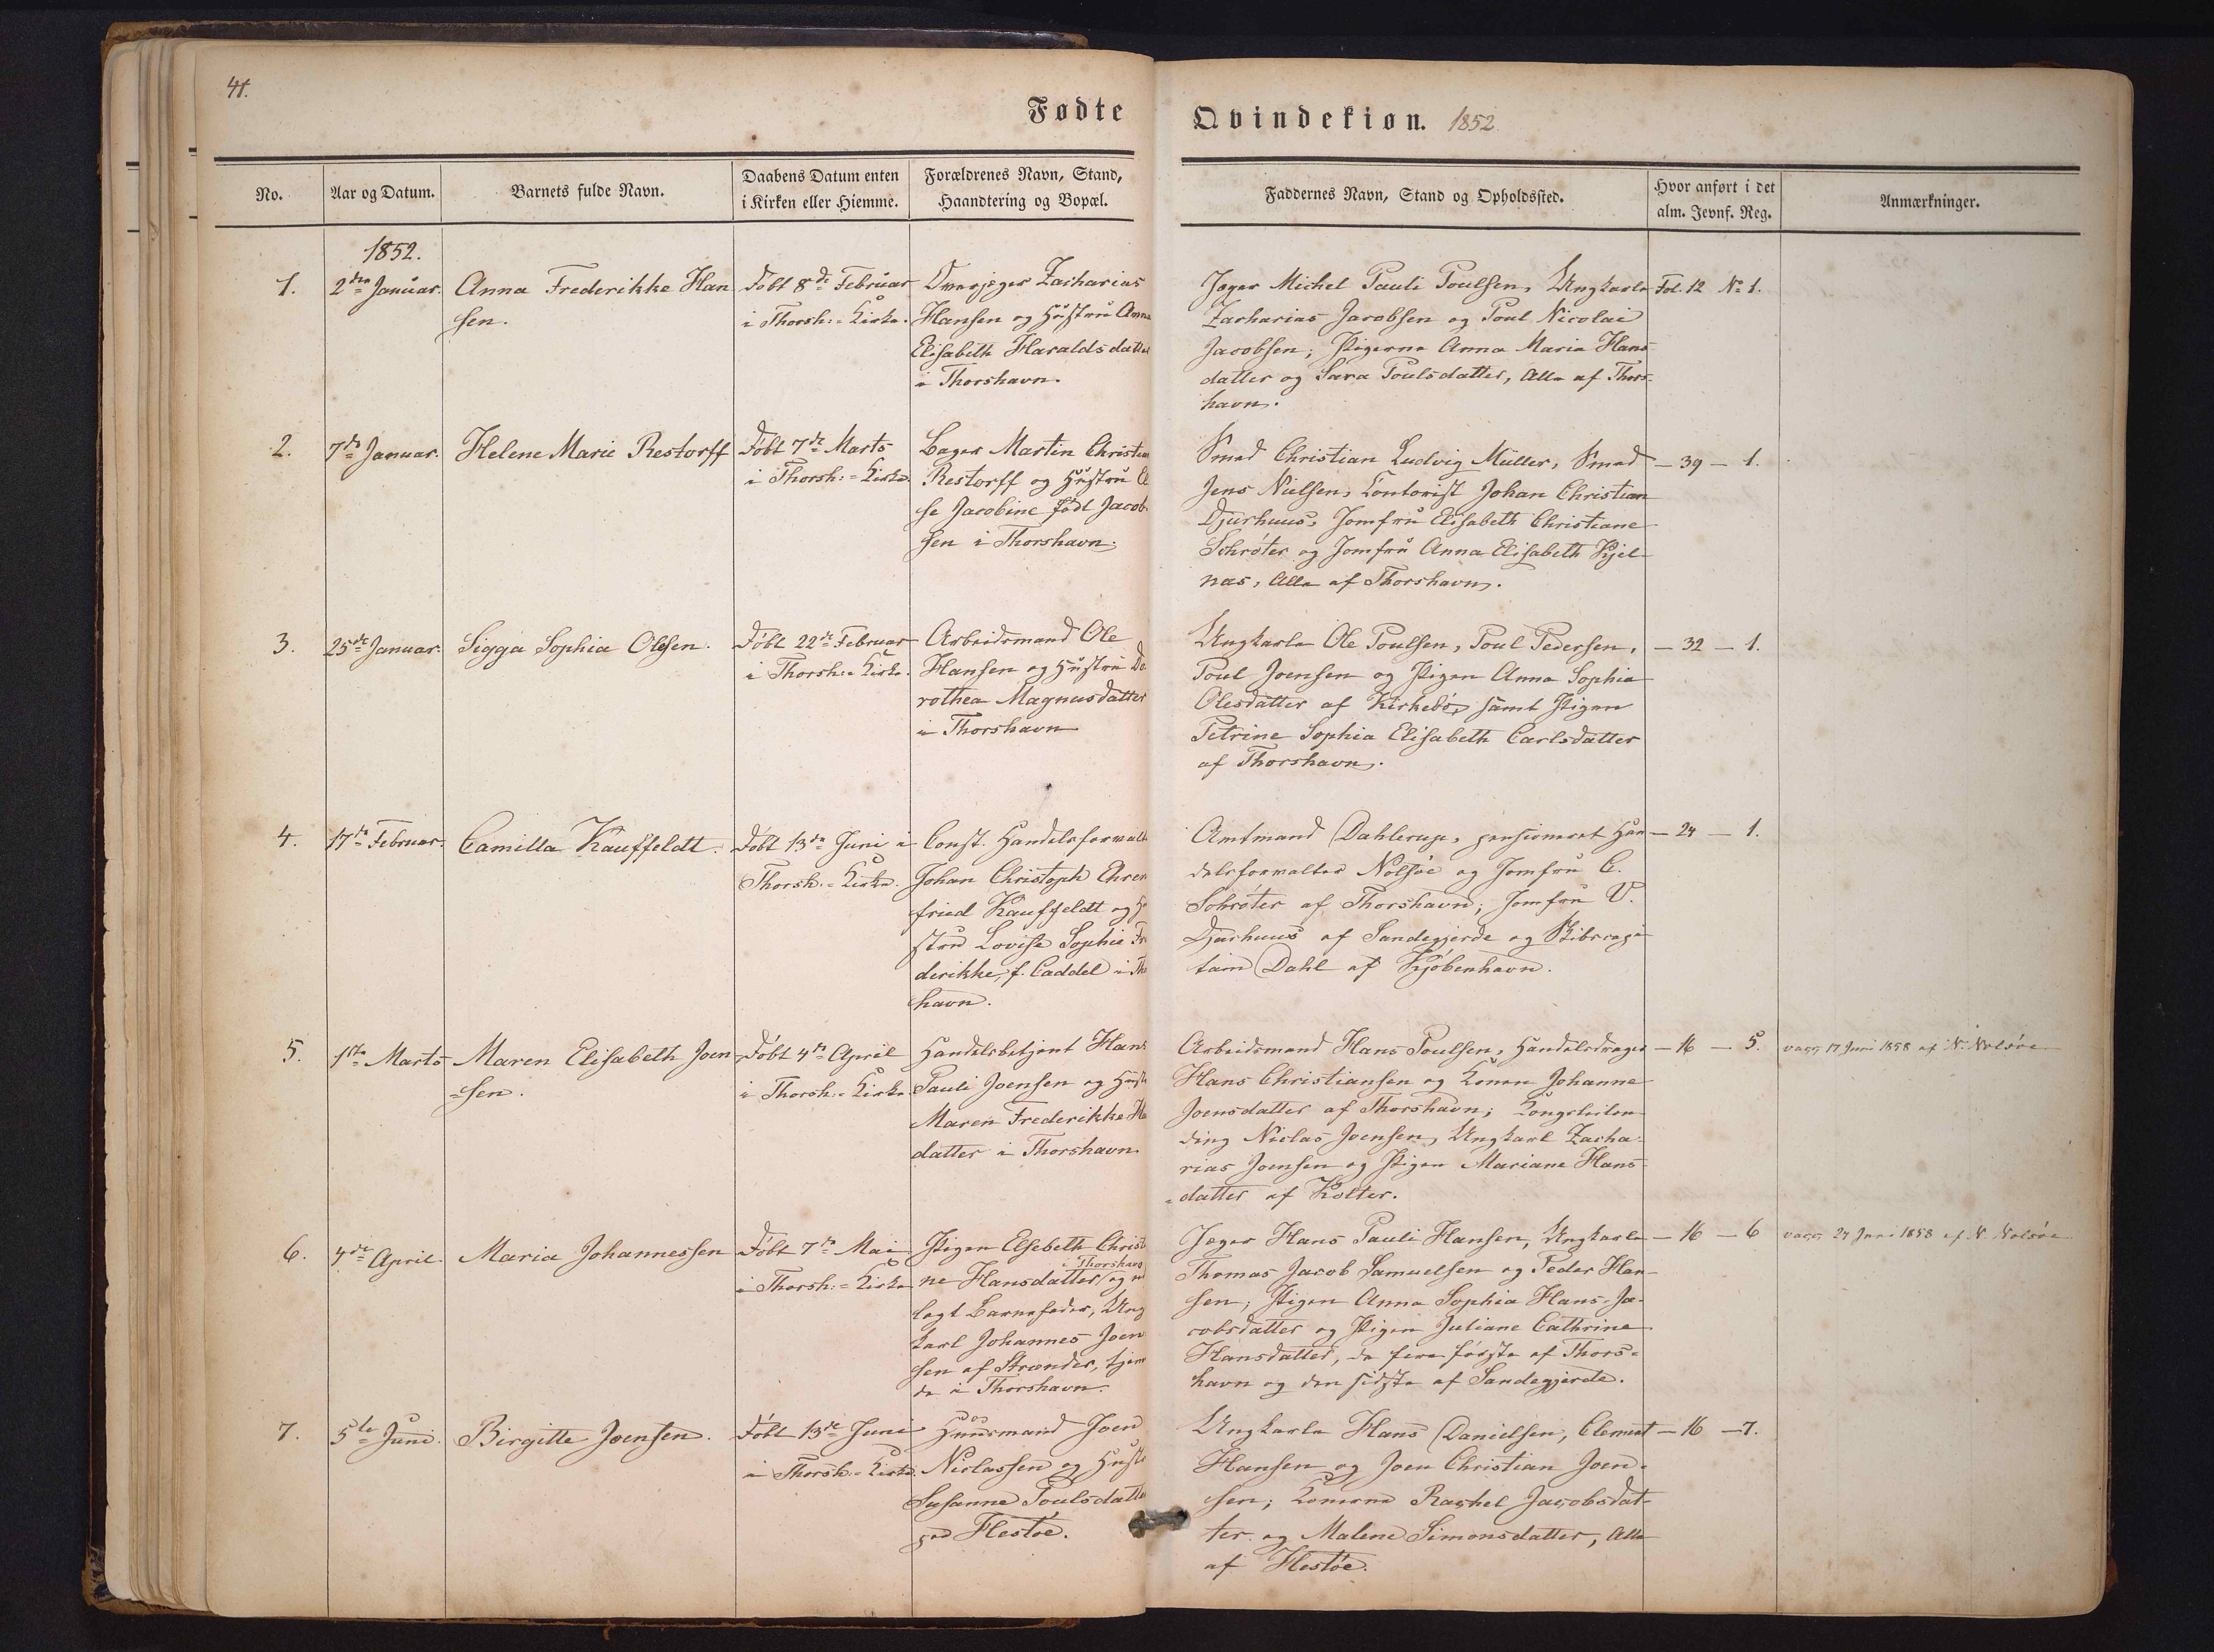 41.
Fødte
Qvindekiøn. 1852
No.
Aar og Datum.
Barnets fulde Navn.
Daabens Datum enten
i Kirken eller Hiemme.
Forældrenes Navn, Stand,
Haandtering og Bopæl.
Faddernes Navn, Stand og Opholdssted.
Hvor anført i det
alm. Jevnf. Reg.
Anmærkninger.
1852.
1.
2den Januar.
Anna Frederikke Han
sen.
Døbt 8de Februar
i Thorsh:=Kirke.
Zacharias
Hansen og Hustru Anna
Elisabeth Haraldsdatter
i Thorshavn.
Jæger Michel Pauli Poulsen, Ungkarle
Zacharias Jacobsen og Poul Nicolai
Jacobsen; Pigerne Anna Maria Hans
datter og Sara Poulsdatter, Alle af Thors-
havn.
Fol. 12 No 1.
2.
7de Januar.
Helene Marie Restorff
Døbt 7de Marts
i Thorsh:=Kirke.
Bager Martin Christian
Restorff og Hustru El
se Jacobine født Jacob-
sen i Thorshavn.
Smed Christian Ludvig Müller, Smed
Jens Nielsen, Contorist Johan Christian
Djurhuus, Jomfru Elisabeth Christiane
Schrøter og Jomfru Anna Elisabeth Kjel-
næs, Alle af Thorshavn.
- 39 - 1.
3.
25de Januar.
Sigga Sophia Olesen.
Døbt 22de Februar
i Thorsh:=Kirke.
Arbeidsmand Ole
Hansen og Hustru Do
rothea Magnusdatter
i Thorshavn
Ungkarle Ole Poulsen, Poul Pedersen,
Poul Joensen og Pigen Anna Sophia
Olesdatter af Kirkebø, samt Pigen
Petrine Sophia Elisabeth Carlsdatter
af Thorshavn.
- 32 - 1.
4.
17de Februar.
Camilla Kauffeldt.
Døbt 13de Juni i
Thorsh.=Kirke.
Const. Handelsforvalt
Johan Christoph Ehren
fried Kauffeldt og Hu
stru Lovise Sophie Fre
derikke, f. Caddel i Tho
havn.
Amtmand Dahlerup, pensioneret Han
delsforvalter Nolsøe og Jomfru E.
Schrøter af Thorshavn; Jomfru V.
Djurhuus af Sandegjerde og Skibscapi
tain Dahl af Kjøbenhavn.
- 24 - 1.
5.
1ste Marts
Maren Elisabeth Joen
=sen.
Døbt 4de April
i Thorsh:=Kirke
Handelsbetjent Hans
Pauli Joensen og Hust
Maren Frederikke Ha
datter i Thorshavn.
Arbeidsmand Hans Poulsen, Handelsdrager
Hans Christiansen og Konen Johanne
Joensdatter af Thorshavn; Kongsleilen
ding Niclas Joensen, Ungkarl Zacha-
rias Joensen og Pigen Mariane Hans-
=datter af Kolter.
- 16 - 5.
vacc 17 Juni 1858 af N. Nolsøe
6.
4de April.
Maria Johannessen
Døbt 7de Mai
i Thorsh:=Kirke
Pigen Elsebeth Christi
i Thorshavn
ne Hansdatter og ud
lagt Barnefader, Ung
karl Johannes Joen
sen af Strænder, tjen
de i Thorshavn.
Jæger Hans Pauli Hansen, Ungkarle
Thomas Jacob Samuelsen og Peder Han-
sen; Pigen Anna Sophia Hans-Ja-
cobsdatter og Pigen Juliane Cathrine
Hansdatter, de fire første af Thors=
havn og den sidste af Sandegjerde.
- 16 - 6
vacc 24 Juni 1858 af N. Nolsøe
7.
5te Juni.
Birgitte Joensen.
Døbt 13de Juni
i Thorsh.=Kirke.
Huusmand Joen
Niclassen og Hustr
Susanne Poulsdatter
paa Hestøe.
Ungkarle Hans Danielsen, Clement
Hansen og Joen Christian Joen-
sen; Konerne Rachel Jacobsdat-
ter og Malene Simonsdatter, Alle
af Hestøe.
- 16 - 7.